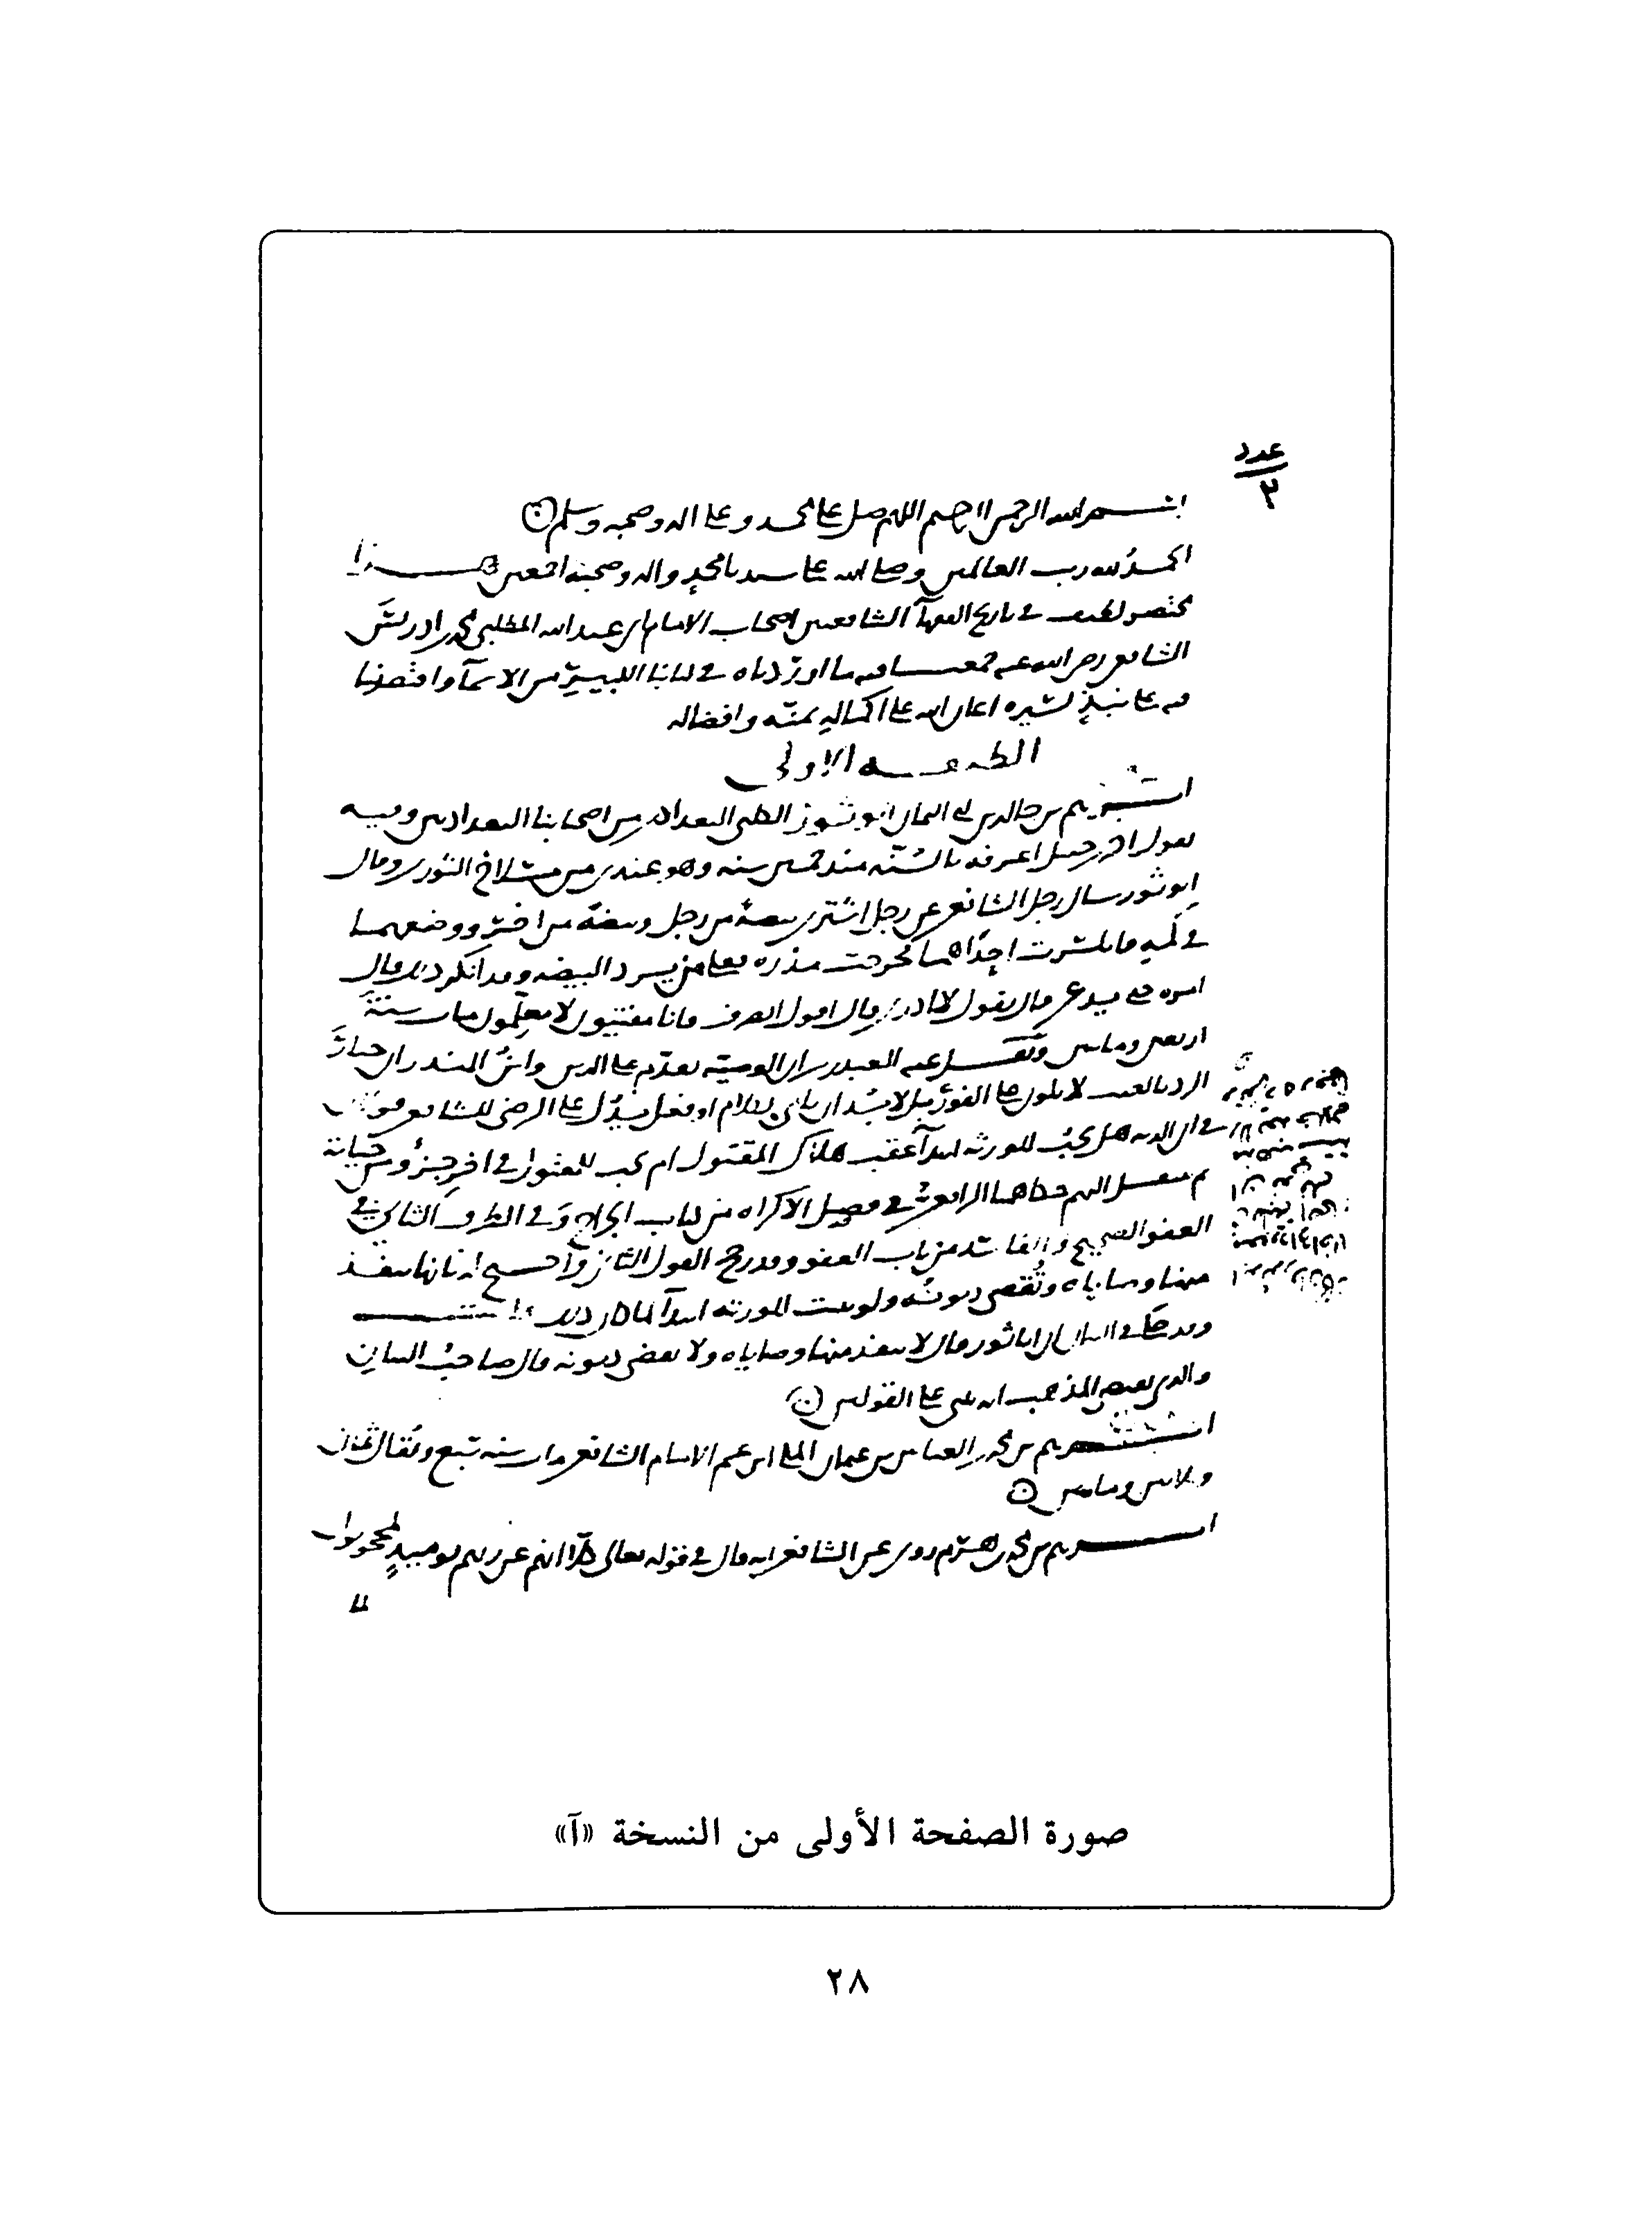 عدد
٣
بسم الله الرحمن الرحيم اللهم صل على محمد وعلى اله وصحبه وسلم
الحمد لله رب العالمين وصلى الله على سيدنا محمد واله وصحبه اجمعين هذا
مختصر لطيف في تاريخ الفقهآ الشافعيين اصحاب الامام ابي عبد الله المطلبي محمد بن ادريس
الشافعي رضي الله عنه جمعنا فيه ما اوردناه في كتابنا الكبير من الاسمآ واقتصرنا
فيه على نبذ يسيره اعان الله على اكماله بمنه وافضاله
الطبقه الاولى
ابرهيم بن خالد بن ابي اليمان ابو ثور الكلبي البغدادي من اصحابنا البغداديين وفيه
يقول احمد بن حنبل اعرفه بالسنه منذ خمسين سنه وهو عندي من مسلاخ الثوري وقال
ابو ثور سال رجل الشافعي عن رجل اشترى بيضة من رجل وبيضة من اخر ووضعهما
في كمه فانكسرت احداهما فخرجت مذره فعلى من يرد البيضه وقد انكر ذلك قال
امره حتى يدعي قال يقول لا ادري قال اقول انصرف فانا مفتيون لا معلمون مات سنة
اربعين وماتين ونقل عنه العبدري ان الوصيه تقدم على الدين وابن المنذر ان خيار
الرد بالعيب لا يكون على الفور بل لا بد ان ياتي بكلام او فعل يدل على الرضى للشافعي قولان
في ان الديه هل تجب للورثه ابتدآ عقب هلاك المقتول ام تجب للمقتول في اخر جزؤ من حياته
ثم تنتقل اليهم حكاهما الرافعي في فصل الاكراه من كتاب الجراح وفي الطرف الثاني في
العفو الصحيح والفاسد من باب العفو
منها وصاياه وتقضى ديونه ولو ثبت للورثه ابتدآ لما كان ذلك
وقد حكى في البيان ان ابا ثور قال لا ينفذ منها وصاياه ولا يقضى ديونه قال صاحب البيان
والذي يقتضي المذهب انه يبنى على القولين
ابرهيم بن محمد بن العباس بن عثمان ابن عم الامام الشافعي مات سنه سبع ويقال ثمان
وثلاثين وماتين
ابرهيم بن محمد بن هرم روى عن الشافعي انه قال في قوله تعالى كلا انهم عن ربهم يوميذ لمحجوبون
صورة الصفحة الأولى من النسخة «آ»
٢٨